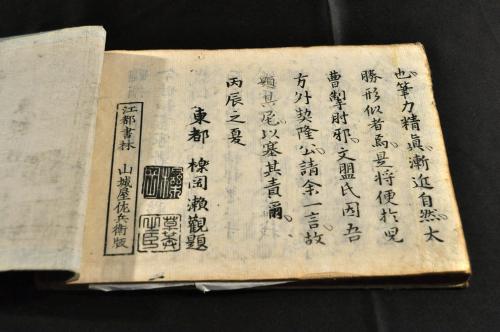 也。筆力精眞。漸進自然。太
勝形似者焉。是將便於兒
曹掣肘邪。文盟氏因吾
方外契隆公請余一言故
題其尾以塞其責爾。
丙辰之夏
東都 櫟岡瀬觀題
江都書林 山城屋佐兵衛版